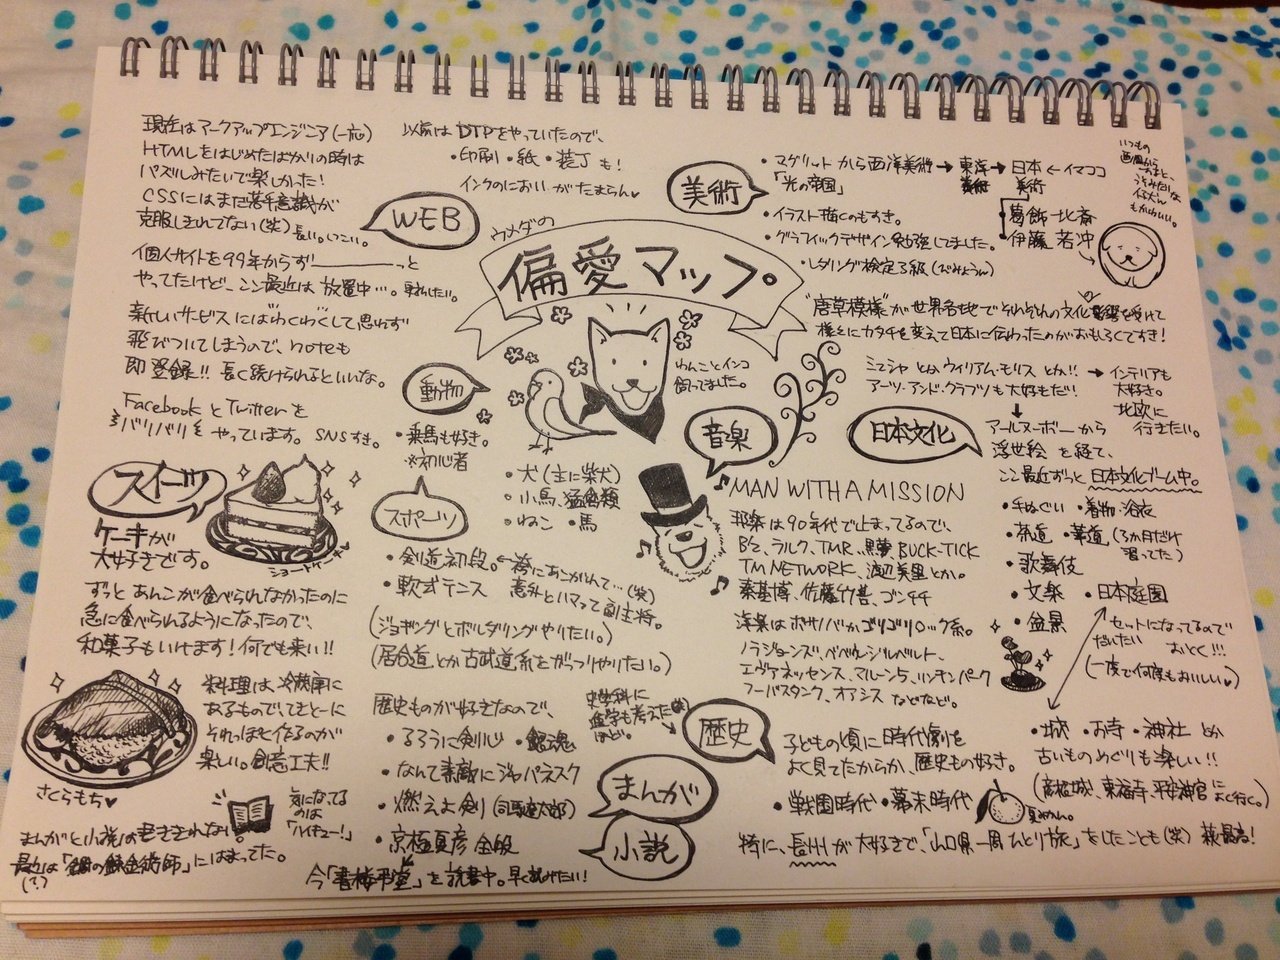 ウメダの
偏愛マップ
WEB
現在はマークアップエンジニア(一応)
HTMLをはじめたばかりの時は
パズルみたいで楽しかった!
CSSにはまだ苦手意識が
克服しきれてない(笑)
個人サイトを99年からず――っと
やってたけどここ最近は放置中…。
新しいサービスにはわくわくして思わず
飛びついてしまうので、noteも
即登録!! 長く続けられるといいな。
FacebookとTwitterを
バリバリやっています。SNSすき。
以前はDTPをやっていたので、
・印刷・紙・装丁も!
インクのにおいがたまらん♥
美術
・マグリットから西洋美術→東洋美術→日本美術←イマココ
「光の帝国」
葛飾北斎
伊藤若冲
・イラスト描くのもすき。
・グラフィックデザイン勉強してました。
・レタリング検定3級(びみょうん)
いつもの
画風から
"唐草模様"が世界各地でそれぞれの文化影響を受けて
様々にカタチを変えて日本に伝わったのがおもしろくてすき!
ミュシャとかウィリアム・モリスとか!!→インテリアも
大好き。
北欧に
行きたい。
アーツ・アンド・クラフツも大好もだ!
↓
アールヌーボーから
浮世絵を経て、
ここ最近ずっと日本文化ブーム中。
日本文化
・手ぬぐい・着物・浴衣
・茶道・華道(3ヵ月だけ
習ってた)
・歌舞伎
・文楽・日本庭園
・盆景
セットになってるので
だいたい
おとく!!!
(一度で何度もおいしい♥)
・城・お寺・神社とか
古いものめぐりも楽しい!!
(彦根城、東福寺、平安神宮によく行く。)
動物
わんことインコ
飼ってました。
・乗馬も好き。
※初心者
・犬(主に柴犬)
・小鳥、猛禽類
・ねこ・馬
スポーツ
・剣道初段。←袴にあこがれて…(笑)
・軟式テニス 意外とハマって副主将。
(ジョギングとボルダリングやりたい。)
(居合道とか古武道系をがっつりやりたい。)
音楽
MAN WITH A MISSION
邦楽は90年代で止まってるので、
B'z、ラルク、TMR、黒夢、BUCK-TICK
TM NETWORK、渡辺美里とか。
秦基博、佐藤竹善、ゴンチチ
洋楽はボサノバかゴリゴリロック系。
ノラジョーンズ、ベベルジルベルト、
エヴァネッセンス、マルーン5、リンキンパーク
フーバスタンク、オアシスなどなど。
スイーツ
ケーキが
大好きです。
ショートケーキ
ずっとあんこが食べられなかったのに
急に食べられるようになったので、
和菓子もいけます!何でも来い!!
さくらもち♥
料理は、冷蔵庫に
あるもので、てきとーに
それっぽく作るのが
楽しい。創意工夫!!
歴史
史学科に
進学も考えた
ほど。
子どもの頃に時代劇を
よく見てたからか、歴史もの好き。
・戦国時代・幕末時代
夏みかん。
特に、長州が大好きで、「山口県一周ひとり旅」をしたことも(笑)萩最高!
まんが
小説
歴史ものが好きなので、
・るろうに剣心・銀魂
・なんて素敵にジャパネスク
・燃えよ剣(司馬遼太郎)
・京極夏彦全般
今「書楼弔堂」を読書中。早く読みたい!
気になってる
のは
「ハイキュー!」
まんがと小説は書ききれない!
最近は「鋼の錬金術師」にはまってた。
(?)